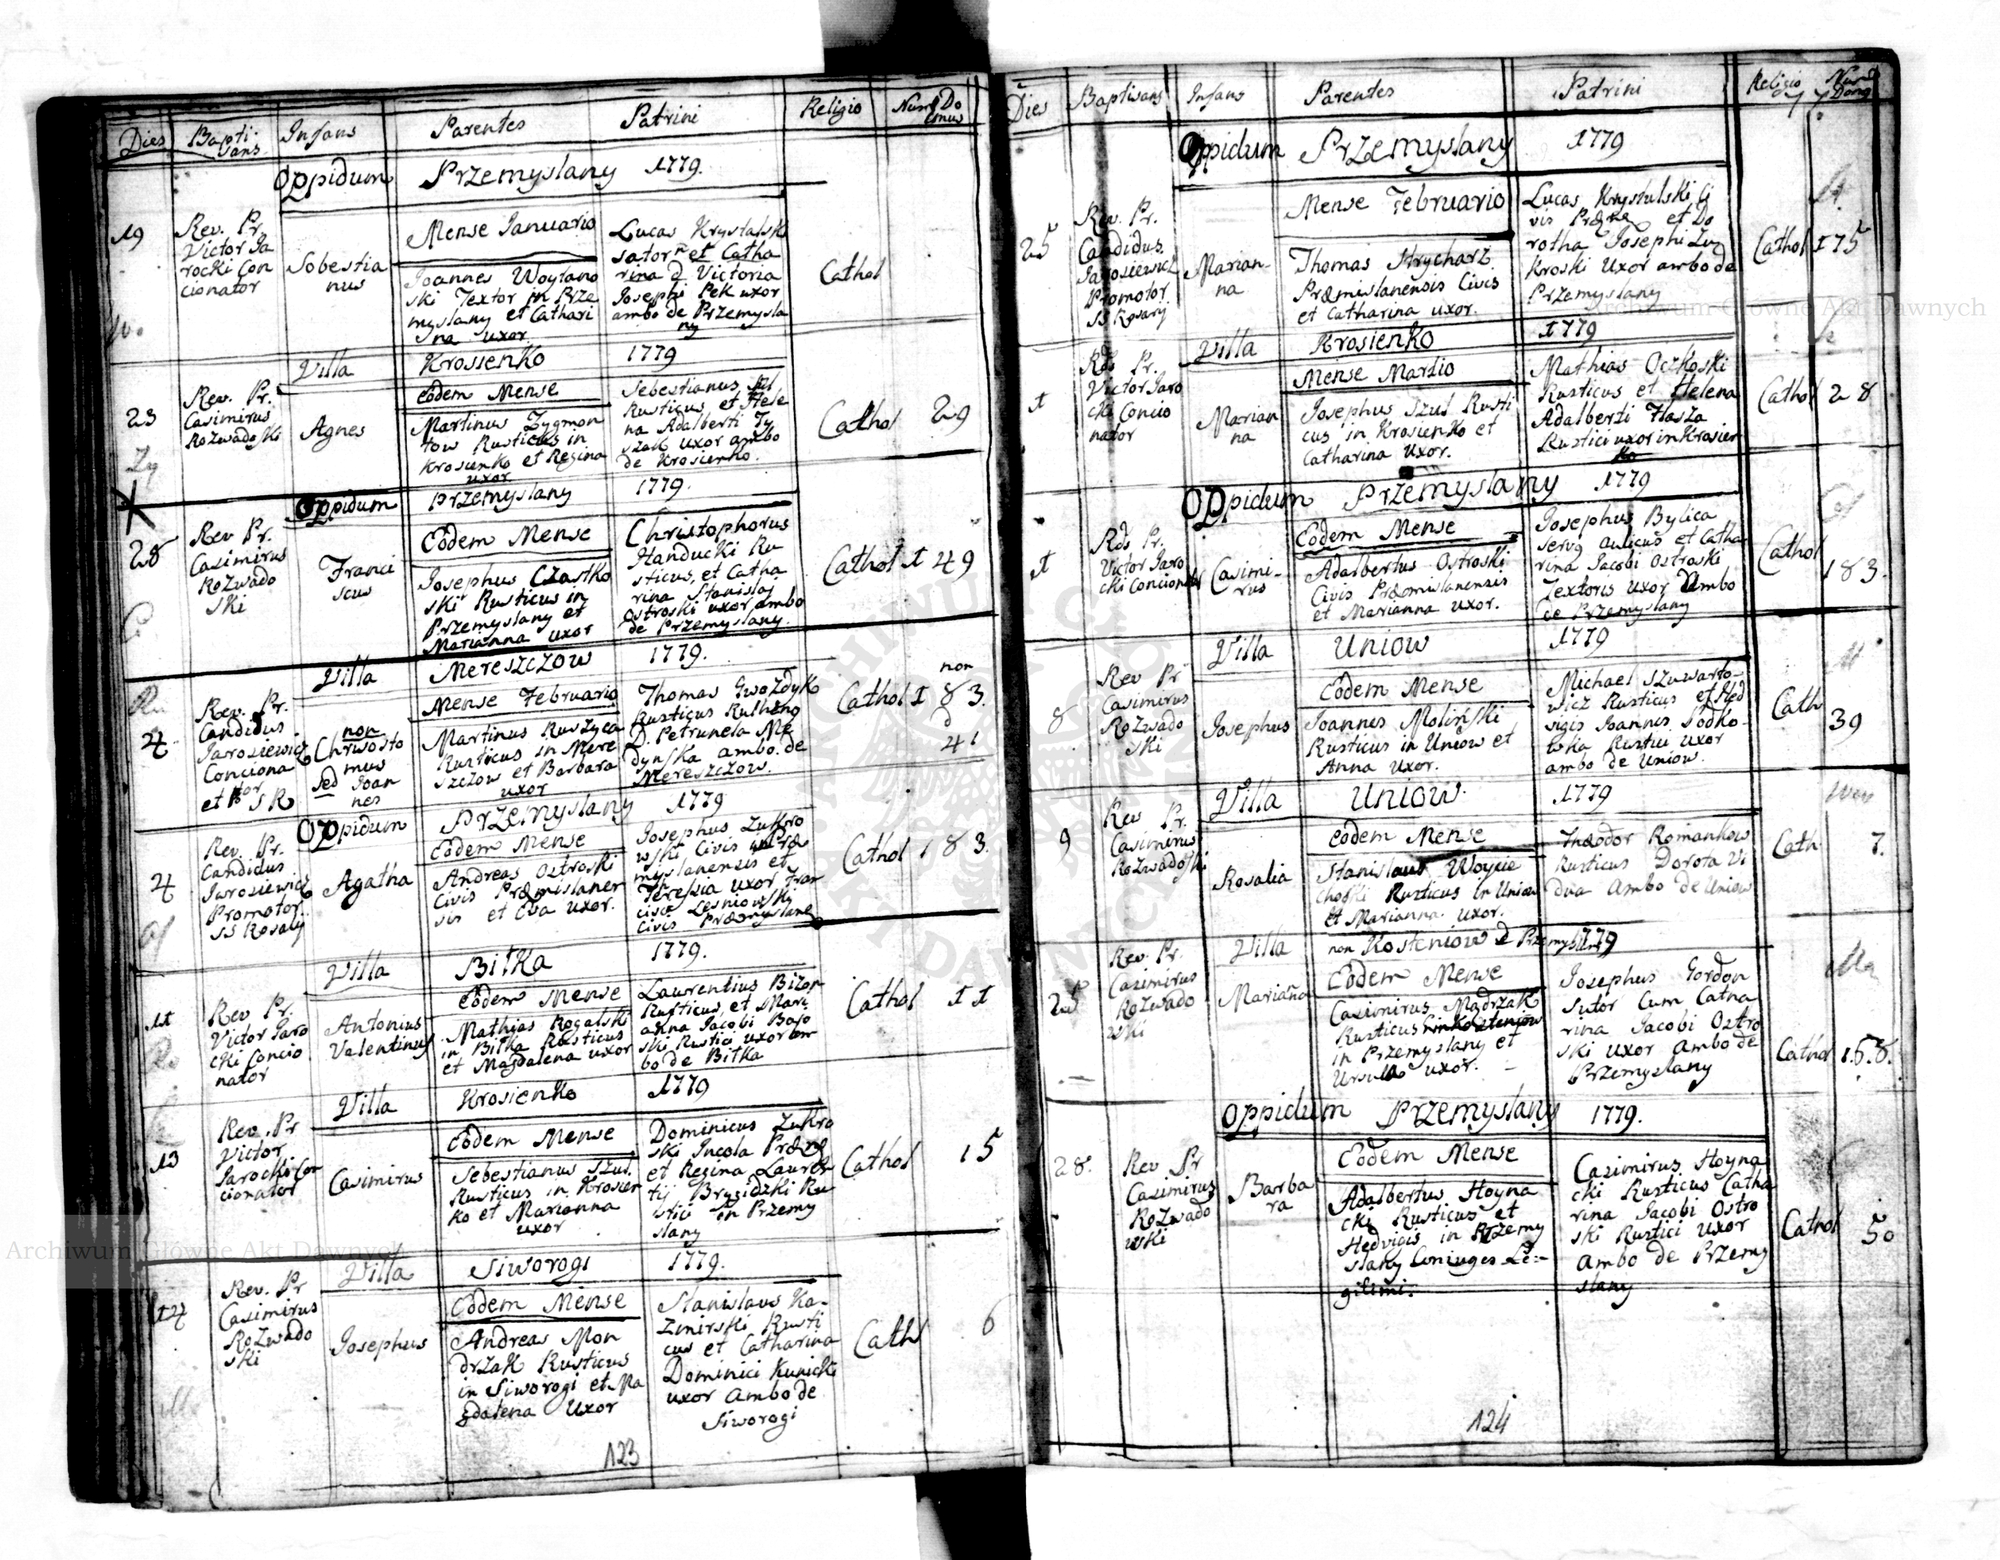 Dies Bapti Infans Parentes Patrini Religio Num Do
sans mus
Oppidum Przemyslany 1779.
19
Rev. Pr.
Victor Ja
rocki Con
cionator
Sobestia
nus
Mense Januario
Joannes Woytano
ski Textor in Prze
myslany et Cathari
na uxor
Lucas Krystalski
sator et Catha
rina D Victoria
Josephi Pek uxor
ambo de Przemysla
ny
Cathol
Villa Krosienko 1779
23
Rev. Pr.
Casimirus
Rozwadoski
Agnes
Eodem Mense
Martinus Zygmon
tow Rusticus in
Krosienko et Regina
uxor
Sebestianus
Rusticus et Hele
na Adalberti Ty
szak uxor ambo
de Krosienko.
Cathol 29
Oppidum Przemyslany 1779.
28
Rev Pr.
Casimirus
Rozwado
ski
Franci
scus
Eodem Mense
Josephus Czastko
ski Rusticus in
Przemyslany et
Marianna uxor
Christophorus
Handucki Ru
sticus, et Catha
rina Stanislai
Ostroski uxor ambo
de Przemyslany.
Cathol 149
Villa Mereszczow 1779.
4
Rev. Pr.
Candidus
Jarosiewicz
Conciona
tor
et P SR
non
Chrisosto
mus
sed Joan
nes
Mense Februario
Martinus Ruszyca
Rusticus in Mere
szczow et Barbara
uxor
Thomas Gwozdyk
Rusticus Rutheno
D. Petrunela Me
dynska ambo de
Mereszczow.
non
Cathol 183.
d
41
Oppidum Przemyslany 1779
4
Rev. Pr.
Candidus
Jarosiewicz
Promotor
SS Rosaly
Agatha
Eodem Mense
Andreas Ostroski
Civis Præmislanen
sis et Eva uxor.
Josephus Zukro
wski, Civis Præ
myslanensis et
Teressia uxor Fran
cisci Lesniowsky
Civis Præmyslane
Cathol 183.
Villa Bitka 1779.
11
Rev Pr.
Victor Jaro
cki Concio
nator
Antonius
Valentinus
Eodem Mense
Mathias Rogalski
in Bitka Rusticus
et Magdalena uxor
Laurentius Bizon
Rusticus, et Mari
anna Jacobi Bajo
ski Rustici uxor am
bo de Bitka
Cathol 11
Villa Krosienko 1779
13
Rev. Pr
Victor
Jarocki Con
cionator
Casimirus
Eodem Mense
Sebestianus Szul
Rusticus in Krosien
ko et Marianna
uxor
Dominicus Zukro
ski Incola Præng
et Regina Lauren
tij Brygidzki Ru
stici in Przemy
slany
Cathol 15
Villa Siworogi 1779.
14
Rev. Pr
Casimirus
Rozwado
ski
Josephus
Eodem Mense
Andreas Mon
drzak Rusticus
in Siworogi et Ma
gdalena Uxor
Stanislaus Ka
zmirski Rusti
cus et Catharina
Dominici Kunicki
uxor Ambo de
Siworogi
Cath 6
123
Dies Baptisans Infans Parentes Patrini Religio Num
Dong
Oppidum Przemyslany 1779
25
Rev. Pr.
Candidus
Jarosiewicz
Promotor
SS Rosary
Marian-
na
Mense Februario
Thomas Strycharz
Præmislanensis Civis
et Catharina uxor.
Lucas Krystulski Ci
vis Præng et Do
rotha Josephi Zu
kroski Uxor ambo de
Przemyslany
Cathol 175
Villa Krosienko 1779
1
Rds Pr.
Victor Jaro
cki Concio
nator
Marian
na
Mense Martio
Josephus Szul Rusti
cus in Krosienko et
Catharina uxor.
Mathias Oczkoski
Rusticus et Helena
Adalberti Flasza
Rustici uxor in Krosien
ko
Cathol 28
Oppidum Przemyslany 1779
1
Rds Pr.
Victor Jaro
cki Concionat
Casimi-
rus
Eodem Mense
Adalbertus Ostroski
Civis Præmislanensis
et Marianna uxor.
Josephus Bylica
serv9 aulicus et Catha
rina Jacobi Ostroski
Textoris uxor Ambo
de Przemyslany
Cathol
183.
Villa Uniow 1779
8
Rev Pr
Casimirus
Rozwado
ski
Josephus
Eodem Mense
Joannes Moliński
Rusticus in Uniow et
Anna Uxor.
Michael Szuwarto-
wicz Rusticus et Hed
vigis Joannes Sodko-
wska Rustici Uxor
ambo de Uniow.
Cath
39
Villa Uniow 1779
9
Rev Pr.
Casimirus
Rozwadoski
Rosalia
Eodem Mense
Stanislaus Woycie
choski Rusticus in Uniow
et Marianna uxor.
Theodor Romankow
Rusticus Dorota Vi
dua Ambo de Uniow
Cath 7.
Villa non Kosteniow d Przemyslany 1779
25
Rev. Pr.
Casimirus
Rozwado
wski
Marianna
Eodem Mense
Casimirus Mądrzak
Rusticus in Kosteniow
in Przemyslany et
Ursula uxor.
Josephus Gordon
Sutor Cum Catha
rina Jacobi Ostro
ski uxor Ambo de
Przemyslany
Cathol 158.
Oppidum Przemyslany 1779.
28.
Rev Pr
Casimirus
Rozwado
wski
Barba
ra
Eodem Mense
Adalbertus Hoyna
cki Rusticus et
Hedvigis in Przemy
slany Coniuges Le-
gitimi.
Casimirus Hoyna
cki Rusticus Catha
rina Jacobi Ostro
ski Rustici uxor
Ambo de Przemy
slany
Cathol 50
124
Archiwum Główne Akt Dawnych
Archiwum Główne Akt Dawnych
ARCHIWUM GŁÓWNE AKT DAWNYCH